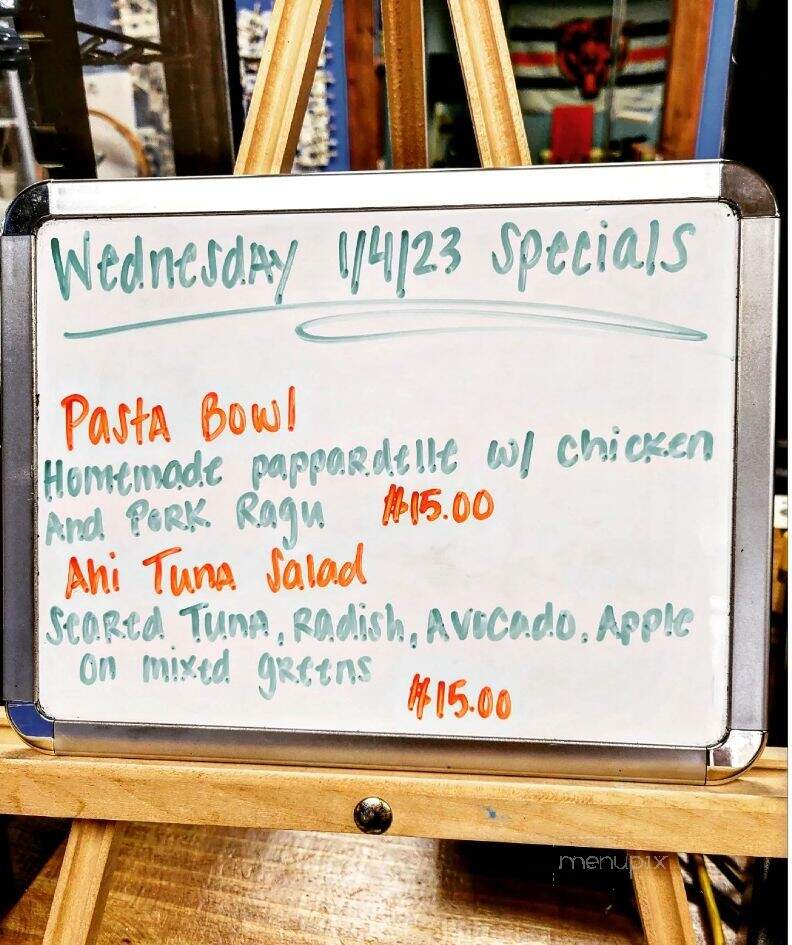 Wednesday 1/4/23 Specials
Pasta Bowl
Homemade pappardelle w/ chicken
And Pork Ragu $15.00
Ahi Tuna Salad
Seared Tuna, Radish, Avocado, Apple
on mixed greens
$15.00
menupix